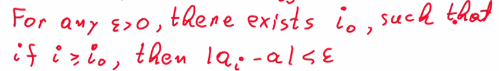 For any ε>0, there exists i₀, such that
if i ≥ i₀, then |aᵢ - a| < ε